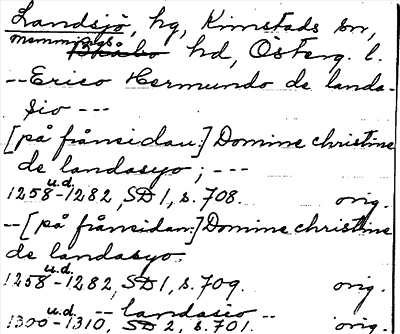 Landsjö, hg, Kimstads sn,
Memmings
Bråbo hd, Österg. l.
-- Erico Hermundo de landa-
sio ---
[på frånsidan:] Domine christine
de landasyo; ---
u.d.
1258-1282, SD 1, s. 708. orig.
-- [på frånsidan:] Domine christine
de landasyo.
u.d.
1258-1282, SD 1, s. 709. orig.
u.d. -- landasio --
1300-1310, SD 2, s. 701. orig.